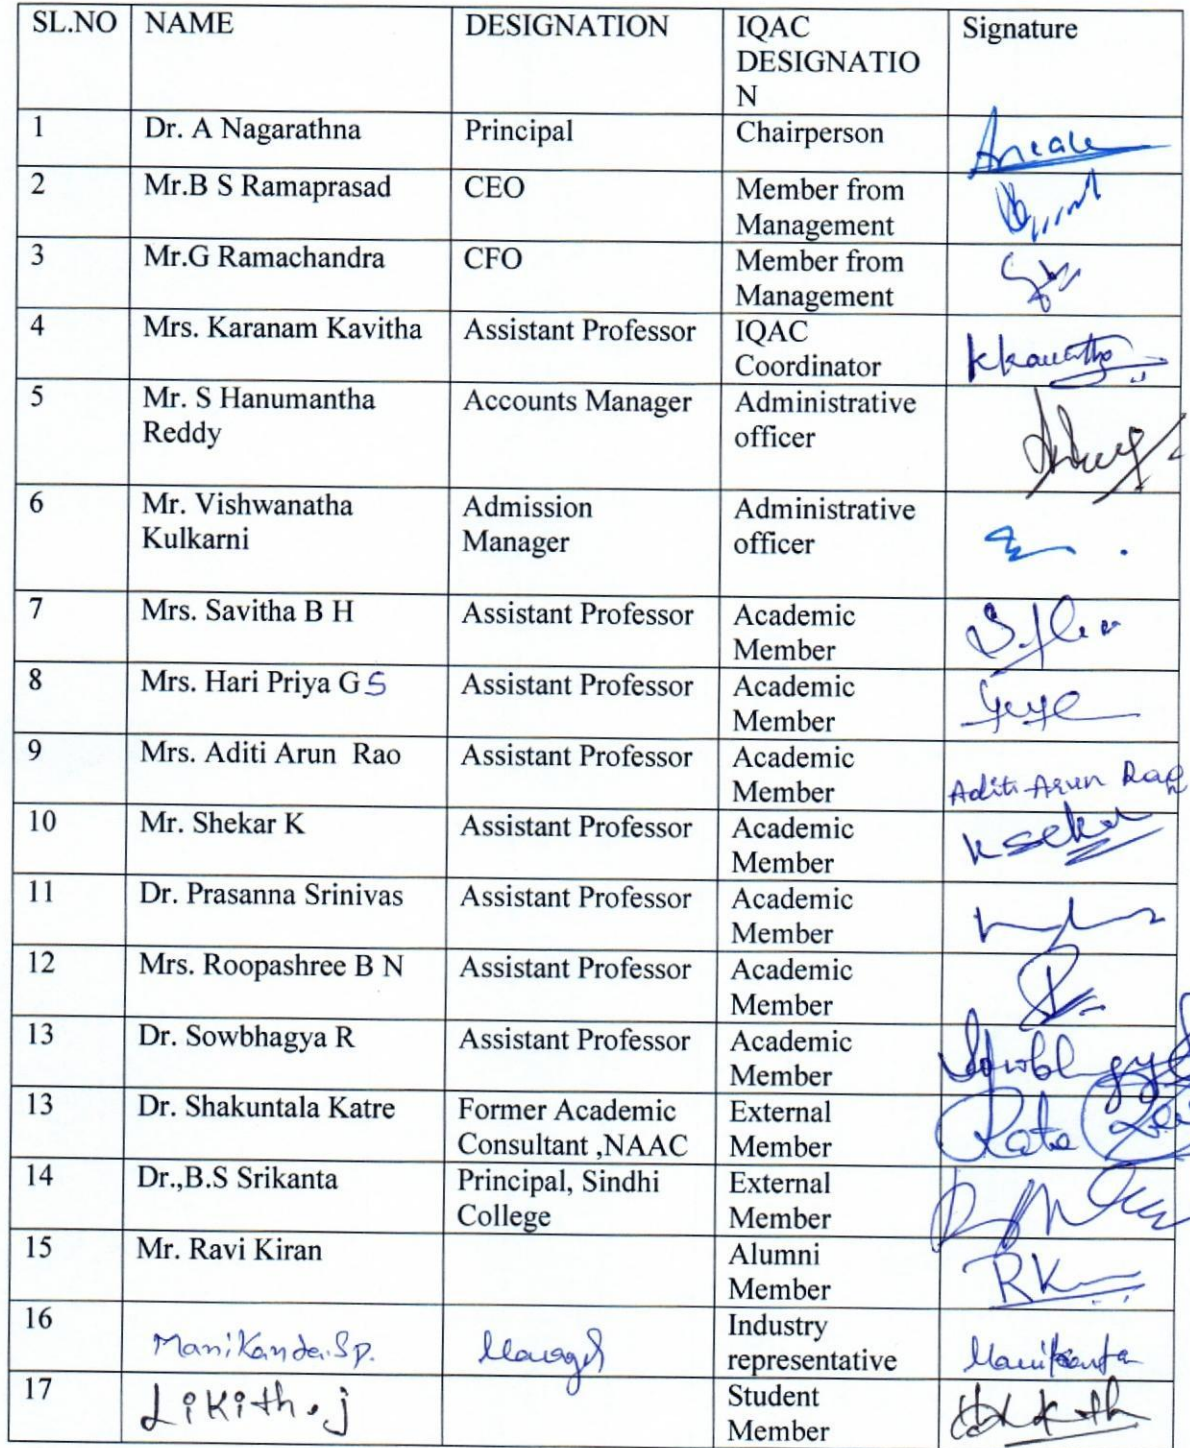 SL.NO NAME DESIGNATION IQAC DESIGNATIO N Signature
1 Dr. A Nagarathna Principal Chairperson
2 Mr.B S Ramaprasad CEO Member from Management
3 Mr.G Ramachandra CFO Member from Management
4 Mrs. Karanam Kavitha Assistant Professor IQAC Coordinator kkavitha
5 Mr. S Hanumantha Reddy Accounts Manager Administrative officer
6 Mr. Vishwanatha Kulkarni Admission Manager Administrative officer
7 Mrs. Savitha B H Assistant Professor Academic Member
8 Mrs. Hari Priya G S Assistant Professor Academic Member
9 Mrs. Aditi Arun Rao Assistant Professor Academic Member Aditi Arun Rao
10 Mr. Shekar K Assistant Professor Academic Member
11 Dr. Prasanna Srinivas Assistant Professor Academic Member
12 Mrs. Roopashree B N Assistant Professor Academic Member
13 Dr. Sowbhagya R Assistant Professor Academic Member
13 Dr. Shakuntala Katre Former Academic Consultant ,NAAC External Member
14 Dr.,B.S Srikanta Principal, Sindhi College External Member
15 Mr. Ravi Kiran Alumni Member RK
16 Manikanda.S.p. Manager Industry representative Manikanta
17 Likith.j Student Member